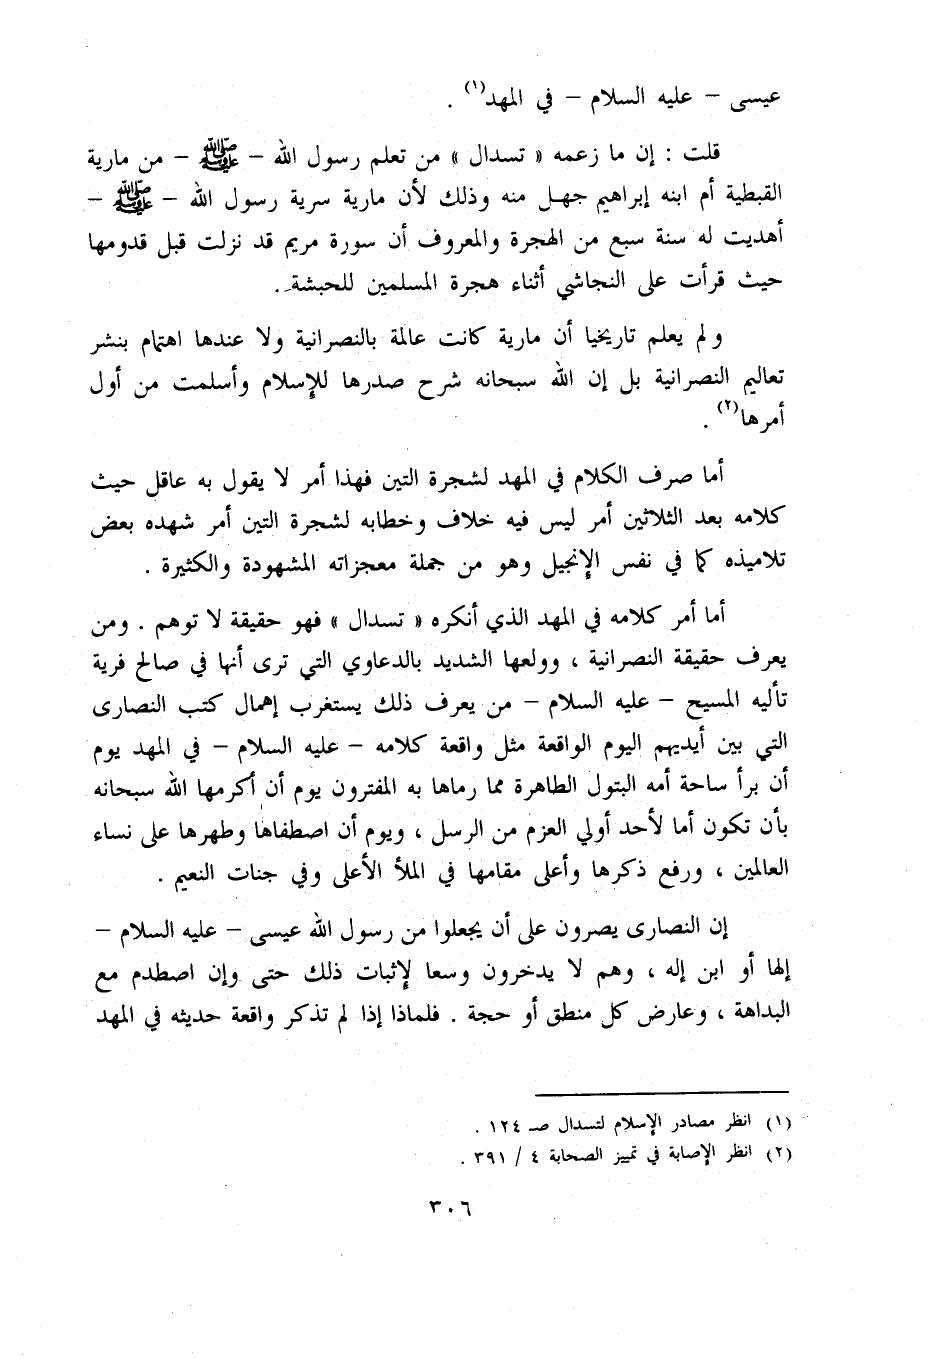 عيسى – عليه السلام – في المهد(١) .
قلت : إن ما زعمه « تسدال » من تعلم رسول الله – ﷺ – من مارية
القبطية أم ابنه إبراهيم جهل منه وذلك لأن مارية سرية رسول الله – ﷺ –
أهديت له سنة سبع من الهجرة والمعروف أن سورة مريم قد نزلت قبل قدومها
حيث قرأت على النجاشي أثناء هجرة المسلمين للحبشة .
ولم يعلم تاريخيا أن مارية كانت عالمة بالنصرانية ولا عندها اهتمام بنشر
تعاليم النصرانية بل إن الله سبحانه شرح صدرها للإسلام وأسلمت من أول
أمرها(٢) .
أما صرف الكلام في المهد لشجرة التين فهذا أمر لا يقول به عاقل حيث
كلامه بعد الثلاثين أمر ليس فيه خلاف وخطابه لشجرة التين أمر شهده بعض
تلاميذه كما في نفس الإنجيل وهو من جملة معجزاته المشهودة والكثيرة .
أما أمر كلامه في المهد الذي أنكره « تسدال » فهو حقيقة لا توهم . ومن
يعرف حقيقة النصرانية ، وولعها الشديد بالدعاوي التي ترى أنها في صالح فرية
تأليه المسيح – عليه السلام – من يعرف ذلك يستغرب إهمال كتب النصارى
التي بين أيديهم اليوم الواقعة مثل واقعة كلامه – عليه السلام – في المهد يوم
أن برأ ساحة أمه البتول الطاهرة مما رماها به المفترون يوم أن أكرمها الله سبحانه
بأن تكون أما لأحد أولي العزم من الرسل ، ويوم أن اصطفاها وطهرها على نساء
العالمين ، ورفع ذكرها وأعلى مقامها في الملأ الأعلى وفي جنات النعيم .
إن النصارى يصرون على أن يجعلوا من رسول الله عيسى – عليه السلام –
إلها أو ابن إله ، وهم لا يدخرون وسعا لإثبات ذلك حتى وإن اصطدم مع
البداهة ، وعارض كل منطق أو حجة . فلماذا إذا لم تذكر واقعة حديثه في المهد
(١) انظر مصادر الإسلام لتسدال صـ ١٢٤ .
(٢) انظر الإصابة في تمييز الصحابة ٤ / ٣٩١ .
٣٠٦